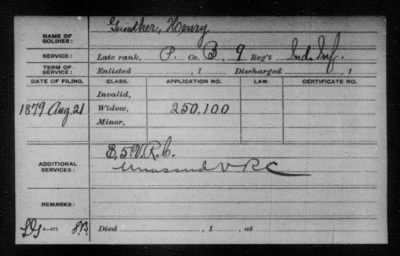 Gunther, Henry
NAME OF SOLDIER:
SERVICE: Late rank, P. Co. B, 9 Reg't Ind. Inf.
TERM OF SERVICE: Enlisted , 1 Discharged , 1
DATE OF FILING. CLASS. APPLICATION NO. LAW. CERTIFICATE NO.
Invalid,
1879 Aug. 21 Widow, 250.100
Minor,
ADDITIONAL SERVICES: E, 5 V.R.C.
Unassnd V R C
REMARKS:
Died , 1 , at